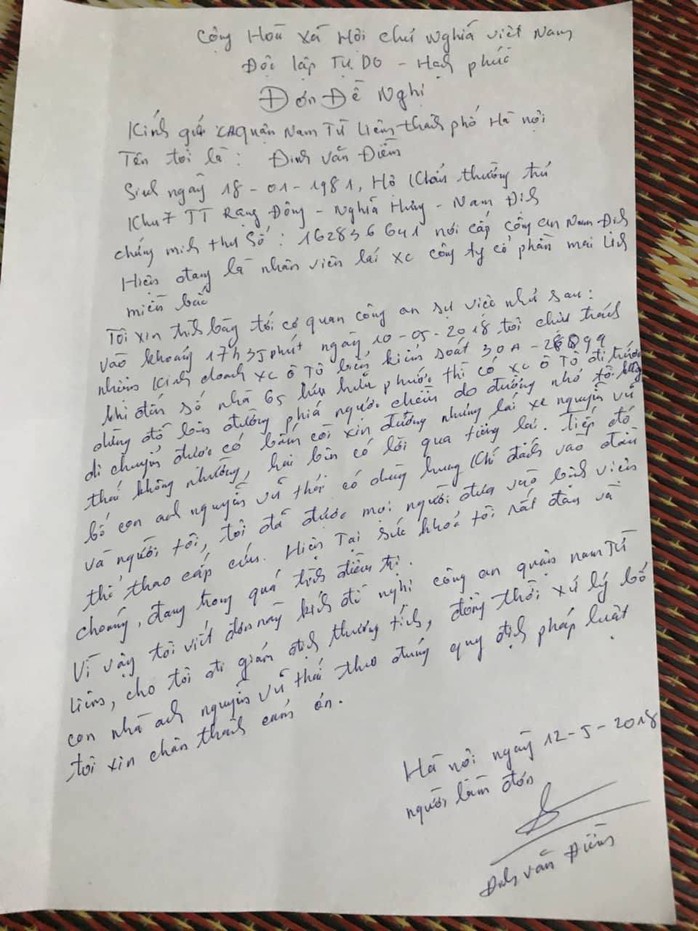 Cộng Hoà Xã Hội chủ Nghĩa việt Nam
Độc lập Tự DO - Hạnh phúc
Đơn Đề Nghị
Kính gửi CA quận Nam Từ Liêm thành phố Hà nội
Tên tôi là : Đinh Văn Điềm
Sinh ngày 18 - 01 - 1981, Hộ khẩu thường trú
Khu 7 TT Rạng Đông - Nghĩa Hưng - Nam Định
chứng minh thư số : 162836641 nơi cấp công an Nam Định
Hiện đang là nhân viên lái xe công ty cổ phần mai linh
miền bắc
Tôi xin trình bày tới cơ quan công an sự việc như sau :
vào khoảng 17h35 phút ngày 10-05-2018 tôi chịu trách
nhiệm kinh doanh xe ô tô biển kiểm soát 30A-
khi đến số nhà 65 hữu phước thì có xe ô tô đi trước
dừng đỗ bên đường phía ngược chiều do đường nhỏ tôi
di chuyển được có bấm còi xin đường nhưng lái xe nguyễn vũ
thái không nhường, hai bên có lời qua tiếng lại. Tiếp đó
bố con anh nguyễn vũ thái có dùng hung khí đánh vào đầu
và người tôi, tôi đã được mọi người đưa vào bệnh viện
thể thao cấp cứu. Hiện Tại sức khoẻ tôi rất đau và
choáng, đang trong quá trình điều trị.
Vì vậy tôi viết đơn này kính đề nghị công an quận nam Từ
liêm, cho tôi đi giám định thương tích, đồng thời xử lý bố
con nhà anh nguyễn vũ thái theo đúng quy định pháp luật
tôi xin chân thành cám ơn.
Hà nội ngày 12-5-2018
người làm đơn
Đinh văn Điềm